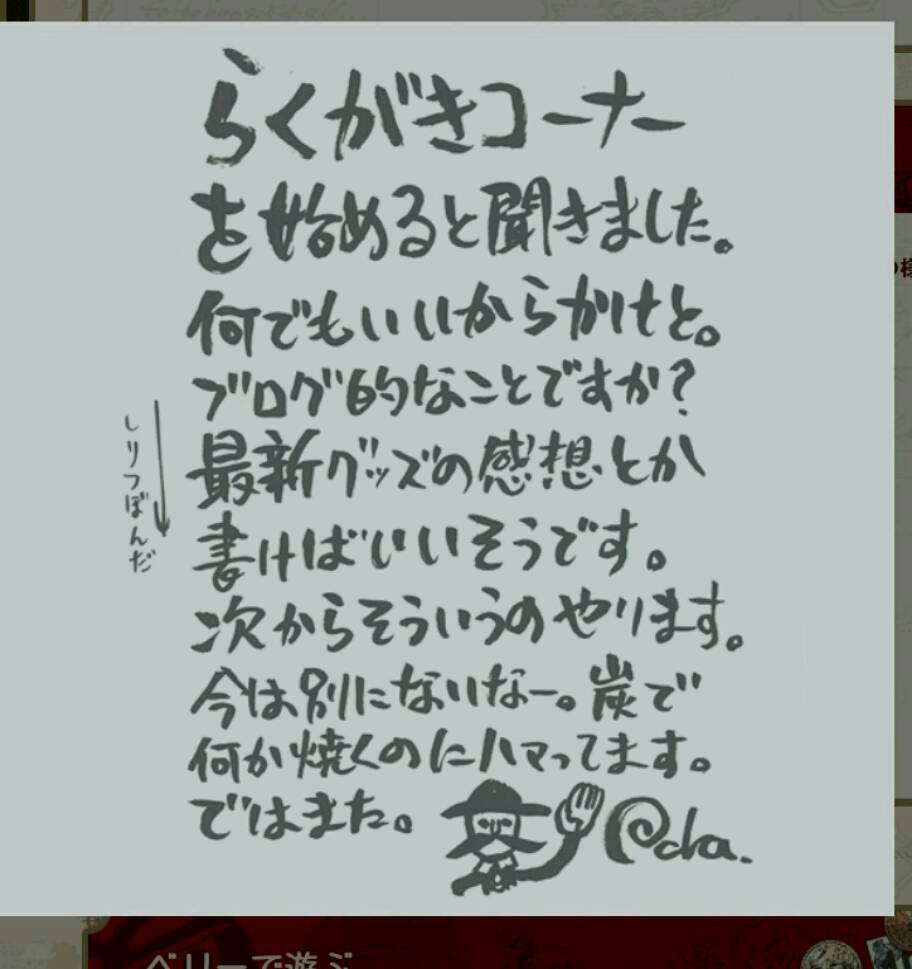 らくがきコーナー
を始めると聞きました。
何でもいいからかけと。
ブログ的なことですか?
最新グッズの感想とか
書けばいいそうです。
次からそういうのやります。
今は別にないなー。炭で
何か焼くのにハマってます。
ではまた。
しりつぼんだ
ベリーで遊ぶ